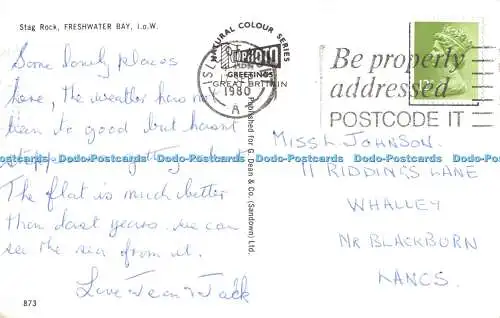 Stag Rock, FRESHWATER BAY, I.o.W.
Some lovely places
here, the weather has not
been to good but hasnt
stopped us getting about
The flat is much better
than last years. we can
see the sea from it.
Love Jean & Jack
873
NATURAL COLOUR SERIES
GREETINGS
GREAT BRITAIN
1980
A
Published for G. Dean & Co. (Sandown) Ltd.
Be properly
addressed
POSTCODE IT
MISS L JOHNSON.
11 RIDDINGS LANE
WHALLEY
NR BLACKBURN
LANCS.
Dodo-Postcards Dodo-Postcards Dodo-Postcards Dodo-Postcards Dodo-Postcards Dodo-Postcards Dodo-Postcards